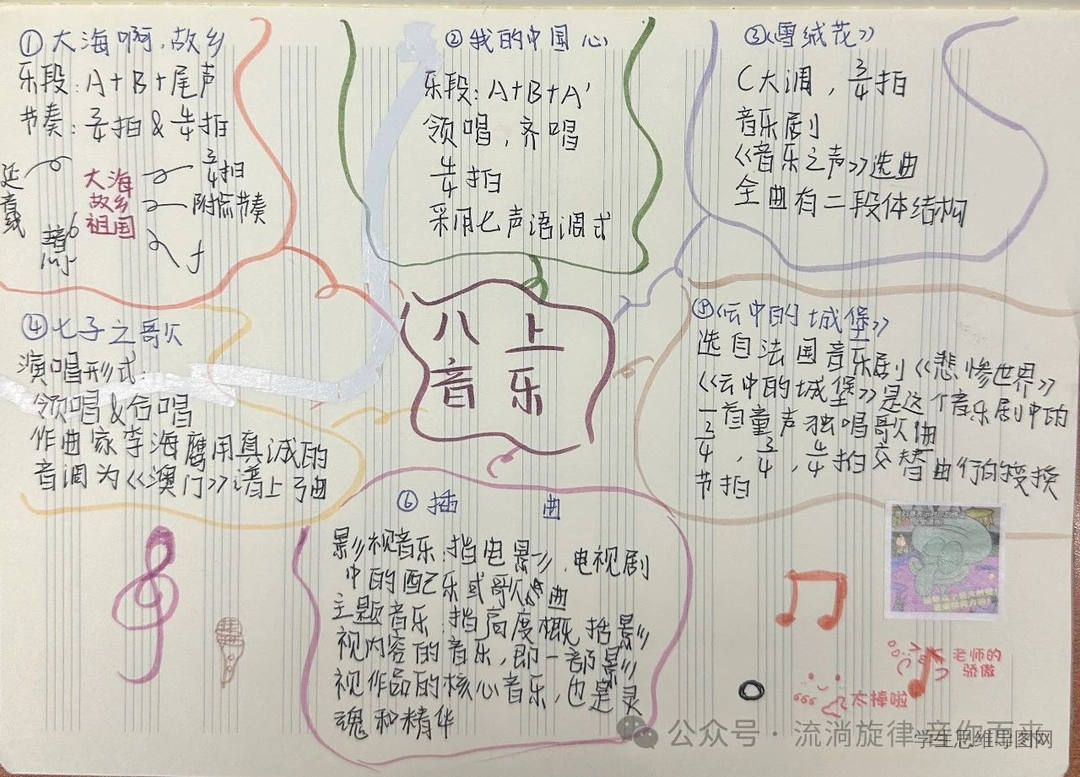 ①大海啊,故乡
乐段:A+B+尾声
节奏:3/4拍&4/4拍
延音线
大海
故乡
祖国
3/4拍
附点节奏
f
②我的中国心
乐段:A+B+A'
领唱,齐唱
4/4拍
采用七声语调式
③《雪绒花》
C大调,3/4拍
音乐剧
《音乐之声》选曲
全曲有二段体结构
八上
音乐
④七子之歌
演唱形式:
领唱&合唱
作曲家李海鹰用真诚的
音调为《澳门》谱上弓曲
《云中的城堡》
选自法国音乐剧《悲惨世界》
《云中的城堡》是这个音乐剧中的
一首童声独唱歌曲
3/4,4/4拍交替曲行的授换
节拍
⑥插曲
影视音乐:指电影、电视剧
中的配乐或歌曲
主题音乐:指高度概括影
视内容的音乐,即一部影
视作品的核心音乐,也是灵
魂和精华
老师的
骄傲
太棒啦
公众号·流淌旋律 音你而来
学生思维导图网